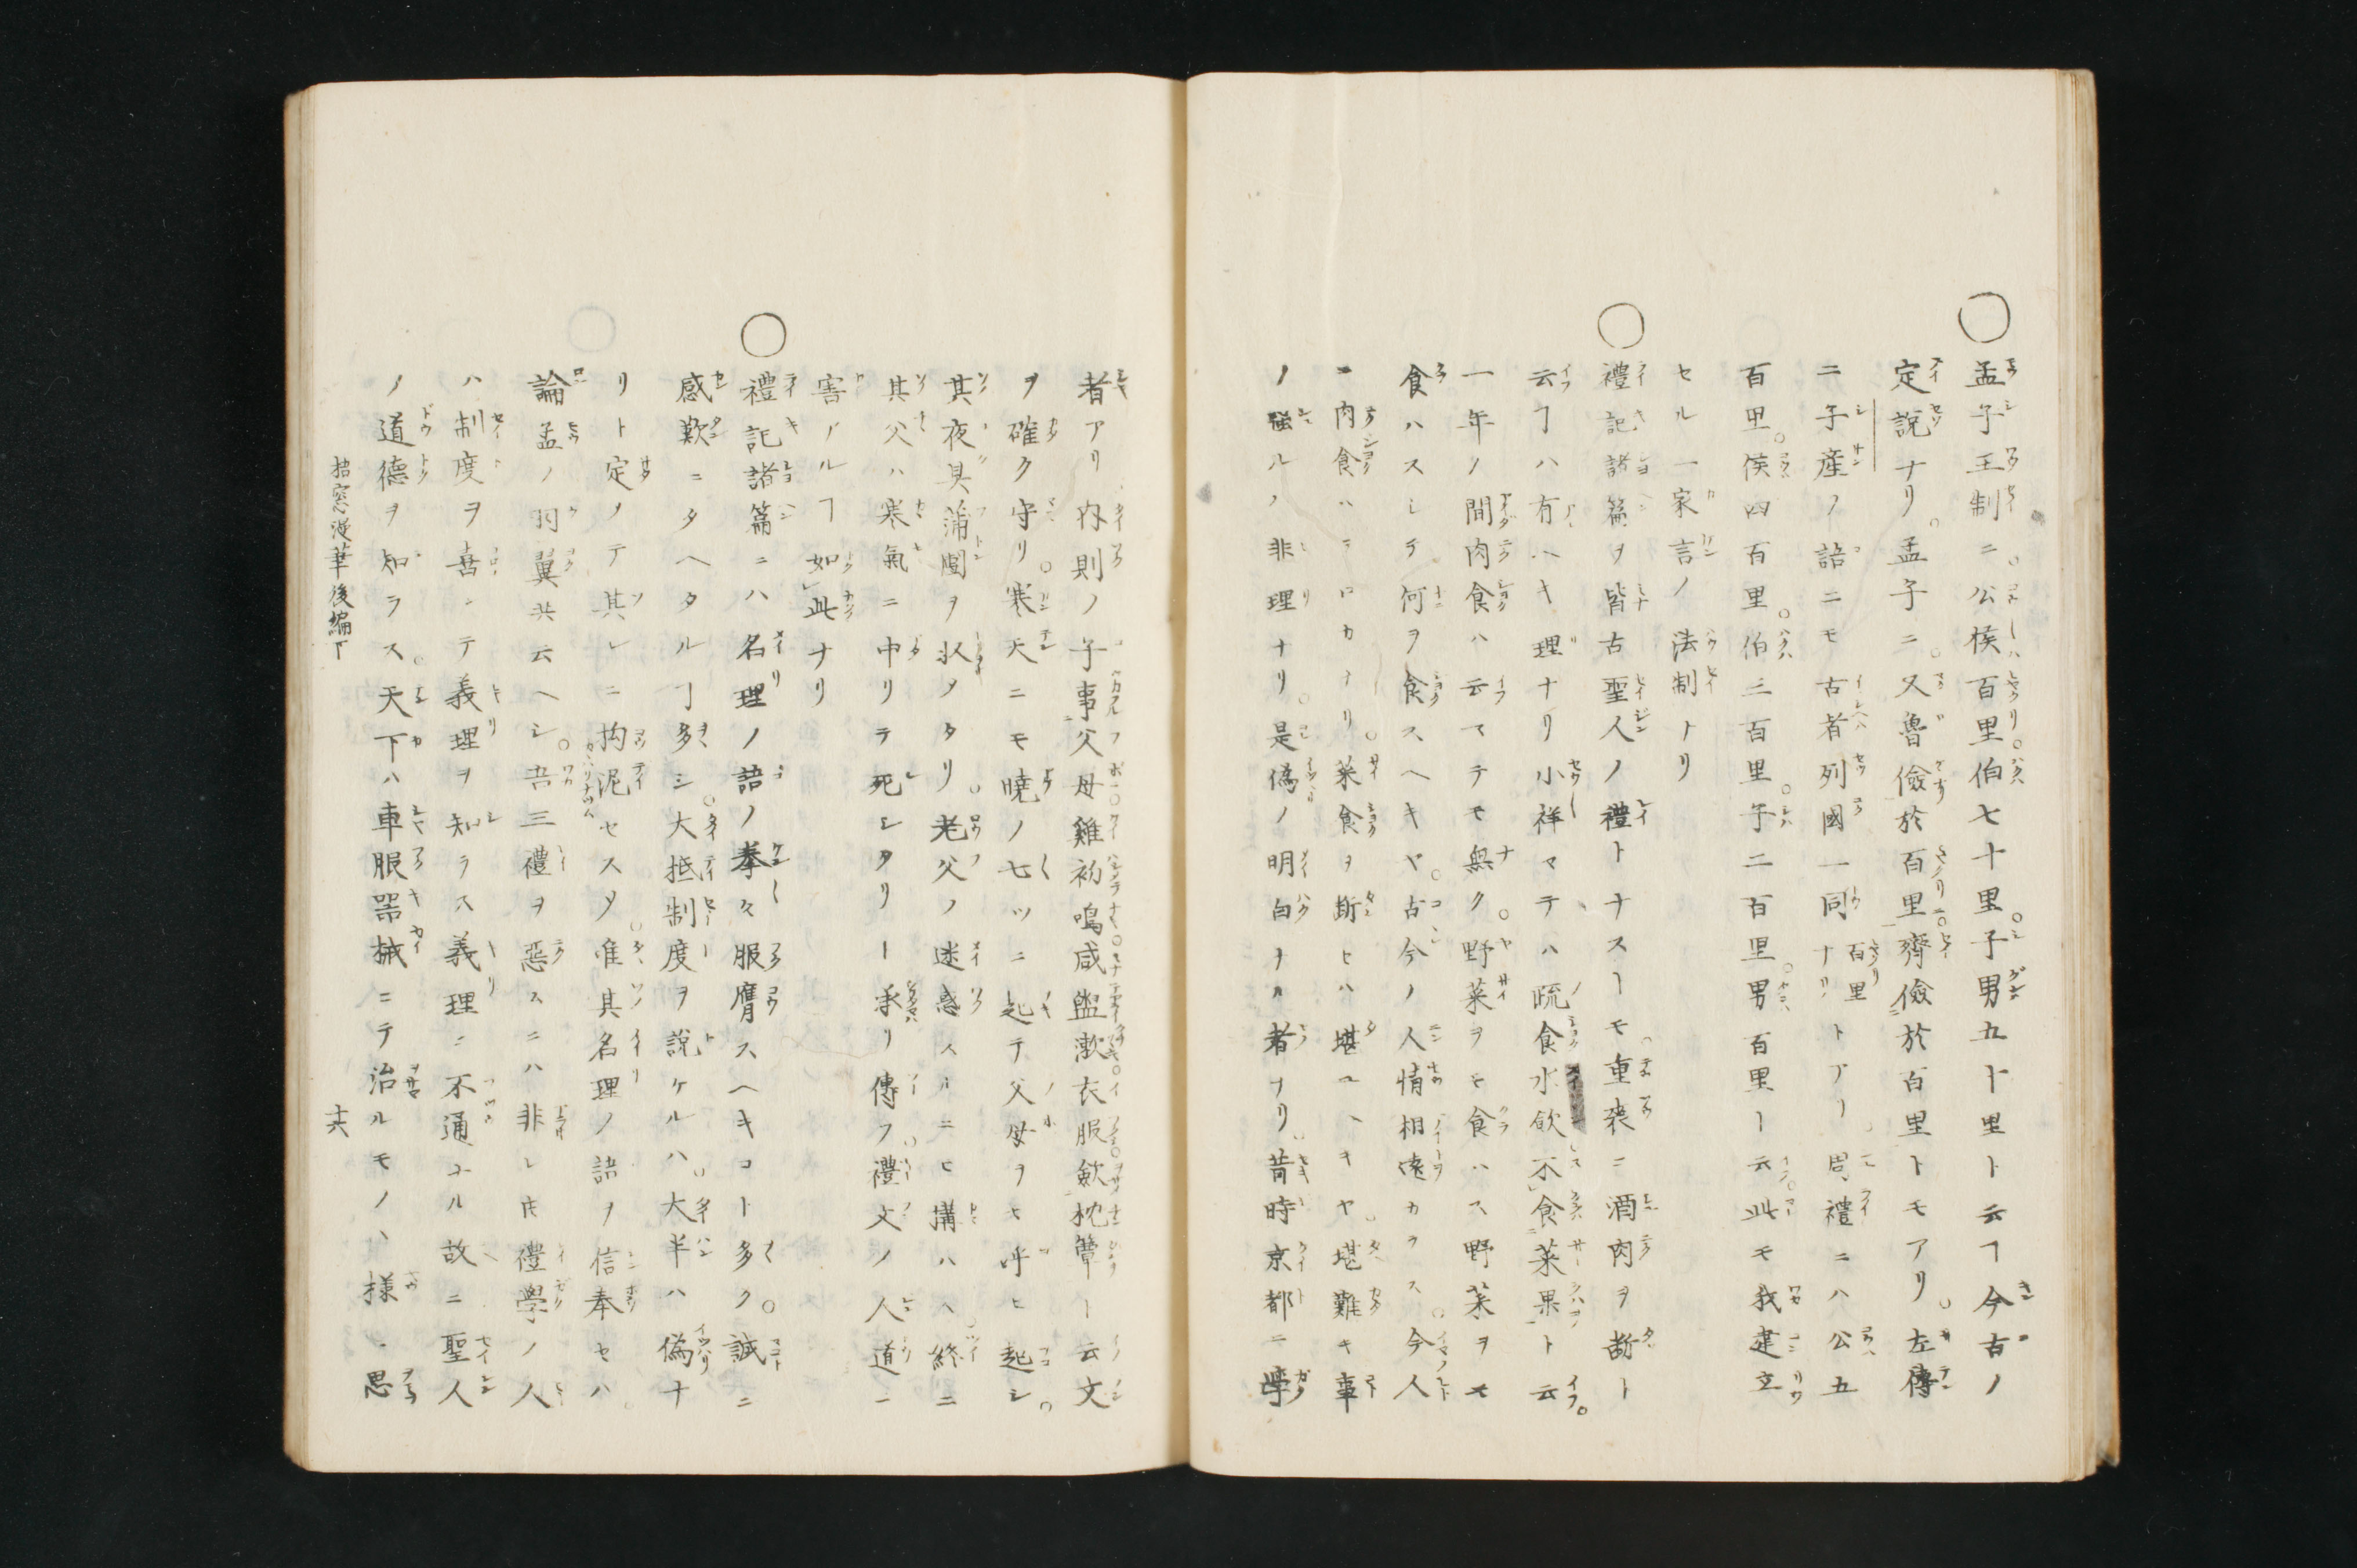 〇孟子王制ニ公侯百里伯七十里子男五十里ト云ヿ今古ノ
定說ナリ孟子ニ又魯儉於百里齊儉於百里トモアリ左傳
ニ子產ノ語ニモ古者列國一同百里ナリトアリ周禮ニハ公五
百里侯四百里伯三百里子二百里男百里ト云此モ我建立
セル一家言ノ法制ナリ
〇禮記諸篇ヲ皆古聖人ノ禮トナストモ重喪ニ酒肉ヲ斷ト
云ヿハ有ヘキ理ナリ小祥マテハ疏食水飮不食菜果ト云
一年ノ間肉食ハ云マテモ無ク野菜ヲモ食ハス野菜ヲモ
食ハスシテ何ヲ食スヘキヤ古今ノ人情相遠カラス今人
ニ肉食ハニロカナリ菜食ヲ斷セハ堪ユヘキヤ堪難キ事
ノ强ルノ非理ナリ是僞ノ明白ナル者ナリ昔時京都ニ學
者アリ內則ノ子事父母雞初鳴咸盥漱衣服歛枕簟ト云文
ヲ確ク守リ寒天ニモ曉ノ七ツニ起テ父母ヲモ呼ヒ起シ
其夜具蒲團ヲ收メタリ老父ノ迷惑スルニモ搆ハヘ終ニ
其父ハ寒氣ニ中リテ死シタリト承リ傳フ禮文ノ人道ニ
害アルヿ如此ナリ
〇禮記諸篇ニハ名理ノ語ノ拳々服膺スヘキコト多ク誠ニ
感歎ニタヘタルヿ多シ大抵制度ヲ說ケルハ大半ハ僞ナ
リト定メテ其レニ拘泥セスタ唯其名理ノ語ヲ信奉セハ
論孟ノ羽翼共云ヘシ吾三禮ヲ惡スニハ非レ𪜈禮學ノ人
ハ制度ヲ喜ンテ義理ヲ知ラス義理ニ不通ユル故ニ聖人
ノ道德ヲ知ラス天下ハ車服器械ニテ治ルモノヽ樣ニ思
拙窓漫筆後編下
十六